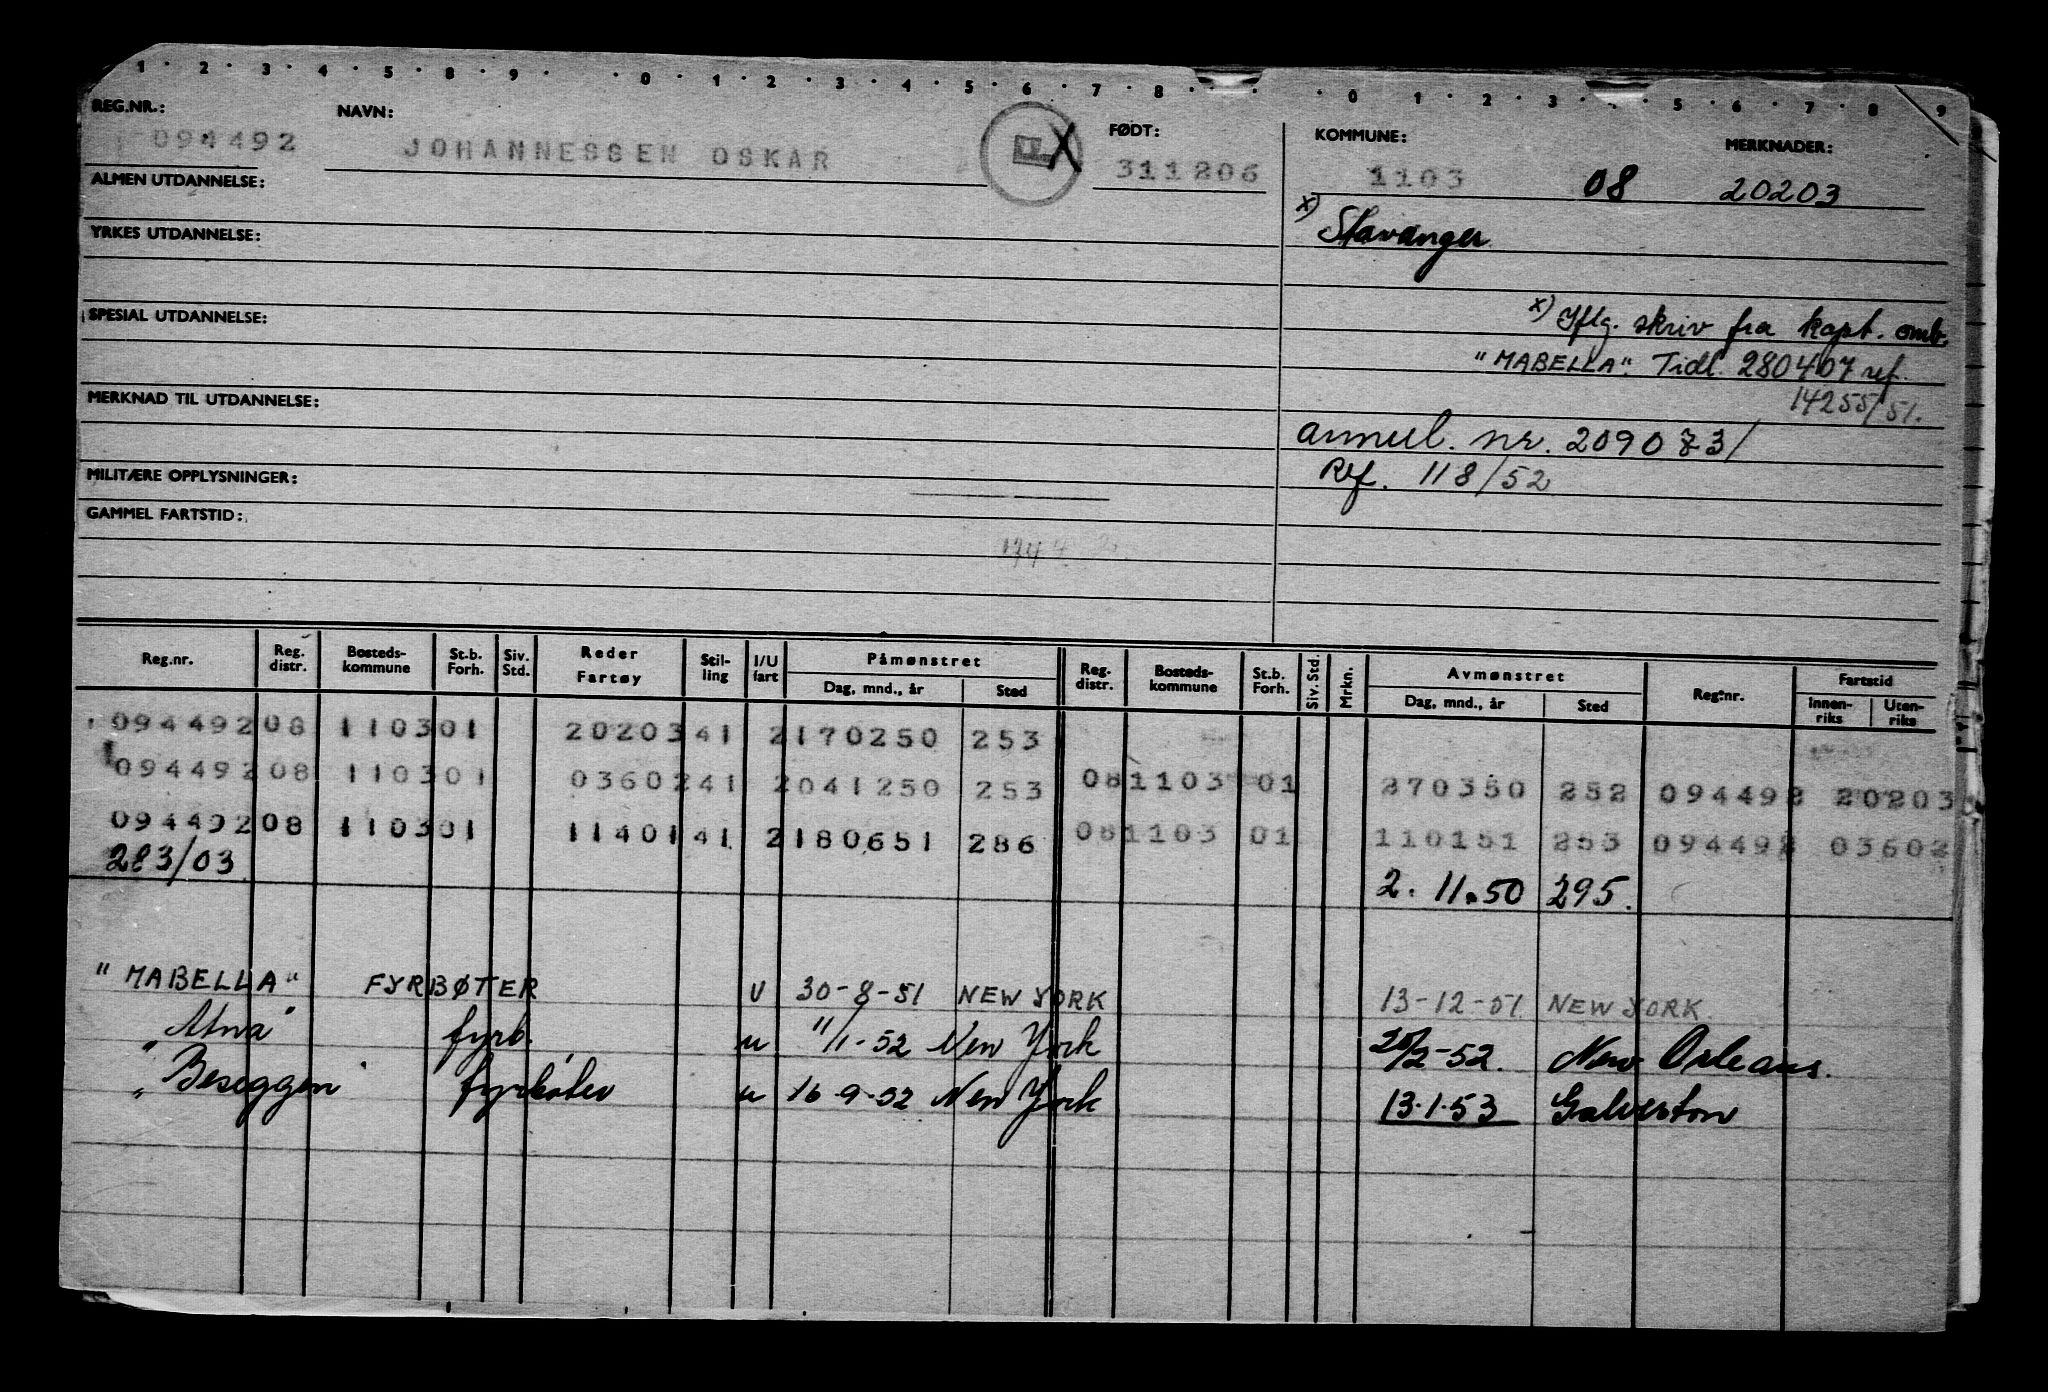 1 · 2 · 3 · 4 · 5 · 8 · 9 · · 0 · 1 · 2 · 3 · 4 · 5 · 6 · 7 · 8 · · 0 · 1 · 2 · 3 · 5 · 6 · 7 · 8 · 9
REG.NR.: NAVN: FØDT: KOMMUNE: MERKNADER:
094492 JOHANNESSEN OSKAR F X 311206 1103 08 20203
ALMEN UTDANNELSE:
x) Stavanger
YRKES UTDANNELSE:
SPESIAL UTDANNELSE:
x) Iflg. skriv fra kapt. omb.
"MABELLA". Tidl. 280407 ref.
14255/51.
MERKNAD TIL UTDANNELSE:
annul. nr. 209073/
Ref. 118/52
MILITÆRE OPPLYSNINGER:
GAMMEL FARTSTID:
Reg.nr. Reg. distr. Bosteds-kommune St.b. Forh. Siv. Std. Reder Fartøy Stil-ling I/U fart Påmønstret Dag, mnd., år Sted Reg. distr. Bosteds-kommune St.b. Forh. Siv. Std. Mrkn. Avmønstret Dag, mnd., år Sted Reg.nr. Fartstid Innen-riks Uten-riks
094492 08 1103 01 20203 41 2 170250 253
094492 08 1103 01 03602 41 2 041250 253 08 1103 01 270350 252 094492 20203
094492 08 1103 01 11401 41 2 180651 286 08 1103 01 110151 253 094492 03602
283/03 2. 11.50 295.
"MABELLA" FYRBØTER U 30-8-51 NEW YORK 13-12-51 NEW YORK.
"Atna" fyrb. u 11/1-52 New York 25/2-52. New Orleans.
"Beseggen" fyrbøter u 16-9-52 New York 13.1.53 Galveston